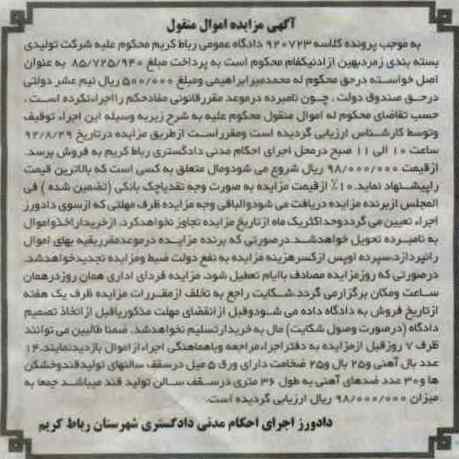 آگهی مزایده اموال منقول
به موجب پرونده کلاسه ۹۲۰۷۲۳ دادگاه عمومی رباط کریم محکوم علیه شرکت تولیدی
بسته بندی زمردبهین ازادنیکفام محکوم است به پرداخت مبلغ ۸۵/۷۲۵/۹۴۰ به عنوان
اصل خواسته درحق محکوم له محمدمیرابراهیمی ومبلغ ۵۰۰/۰۰۰ ریال نیم عشر دولتی
درحق صندوق دولت . چون نامبرده درموعد مقررقانونی مفادحکم رااجراءنکرده است .
حسب تقاضای محکوم له اموال منقول محکوم علیه به شرح زیربه وسیله این اجراء توقیف
وتوسط کارشناس ارزیابی گردیده است ومقرراست ازطریق مزایده درتاریخ ۹۲/۸/۲۹
ساعت ۱۰ الی ۱۱ صبح درمحل اجرای احکام مدنی دادگستری رباط کریم به فروش برسد.
ازقیمت ۹۸/۰۰۰/۰۰۰ ریال شروع می شودومال متعلق به کسی است که بالاترین قیمت
راپیشنهاد نماید.۱۰٪ ازقیمت مزایده به صورت وجه نقدیاچک بانکی (تضمین شده ) فی
المجلس ازبرنده مزایده دریافت می شودوالباقی وجه مزایده ظرف مهلتی که ازسوی دادورز
اجراء تعیین می گرددوحداکثریک ماه ازتاریخ مزایده تجاوز نخواهدکرد، ازخریداراخذواموال
به نامبرده تحویل خواهدشد.درصورتی که برنده مزایده درموعدمقرربقیه بهای اموال
رانپردازد،سپرده اوپس ازکسرهزینه مزایده به نفع دولت ضبط ومزایده تجدیدخواهدشد.
درصورتی که روزمزایده مصادف باایام تعطیل شود، مزایده فردای اداری همان روزدرهمان
ساعت ومکان برگزارمی گردد.شکایت راجع به تخلف ازمقررات مزایده ظرف یک هفته
ازتاریخ فروش به دادگاه داده می شودوقبل ازانقضای مهلت مذکوریاقبل ازاتخاذ تصمیم
دادگاه (درصورت وصول شکایت) مال به خریدارتسلیم نخواهدشد. ضمنا طالبین می توانند
ظرف ۷ روزقبل ازمزایده به دفتراجراءمراجعه وباهماهنگی اجراءازاموال بازدیدنمایند.۱۴
عدد بال آهنی و۲۵ بال و۲۵ ضخامت دارای ورق ۵ میل درسقف سالنهای تولیدقندوخشکن
ها و۳۰ عدد ضدهای آهنی به طول ۳۶ متری درسقف سالن تولید قند میباشد جمعا به
میزان ۹۸/۰۰۰/۰۰۰ ریال ارزیابی گردیده است.
دادورز اجرای احکام مدنی دادگستری شهرستان رباط کریم